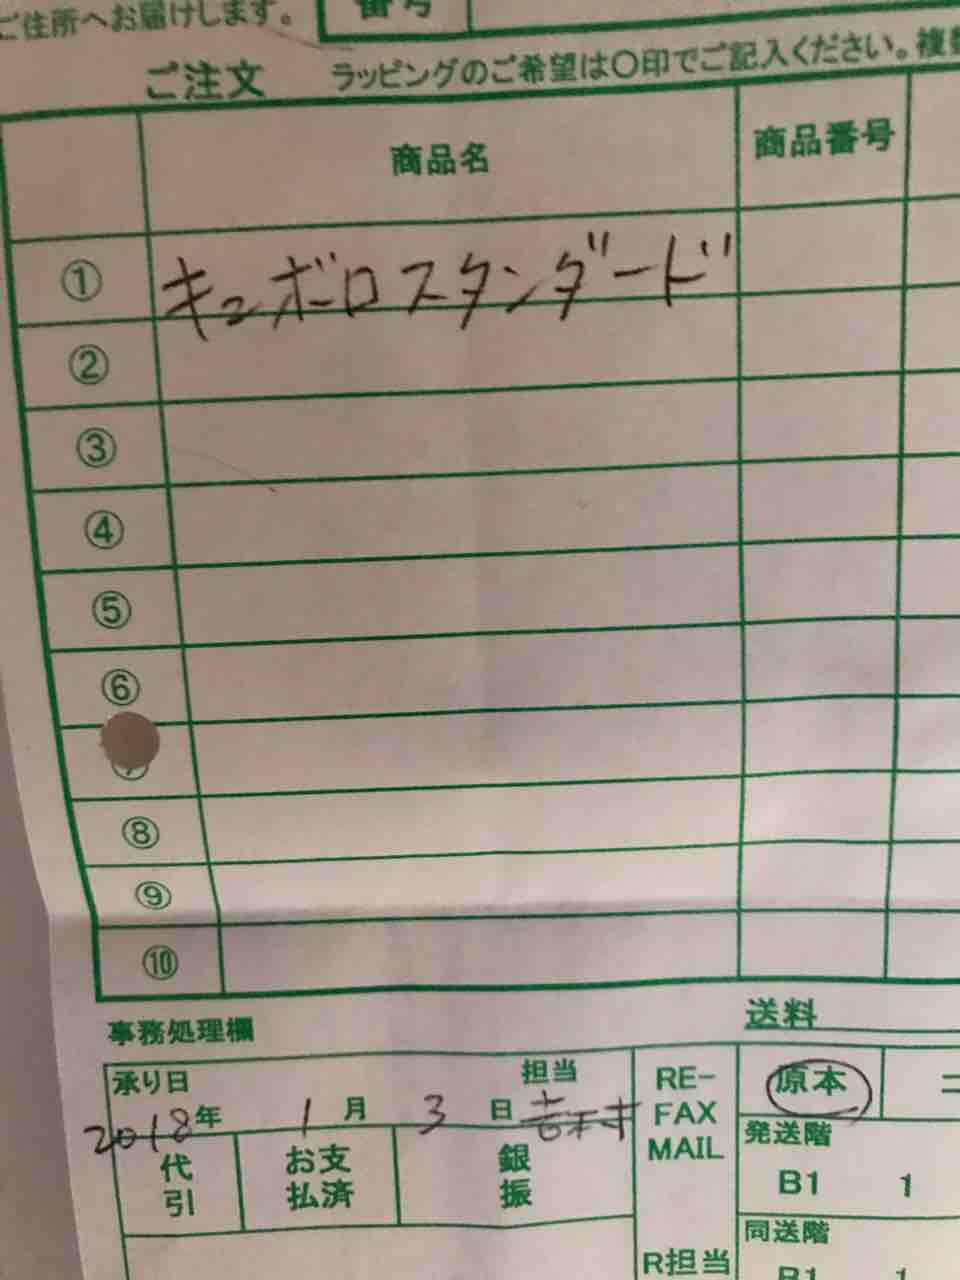 ご住所へお届けします。
番号
ご注文 ラッピングのご希望は〇印でご記入ください。複数
商品名 商品番号
① キュボロスタンダード
②
③
④
⑤
⑥
⑧
⑨
⑩
事務処理欄
送料
承り日 担当
2018年 1月 3日 吉村
代引
お支払済
銀振
RE-
FAX
MAIL
原本
発送階
B1 1
同送階
R担当
B1 1